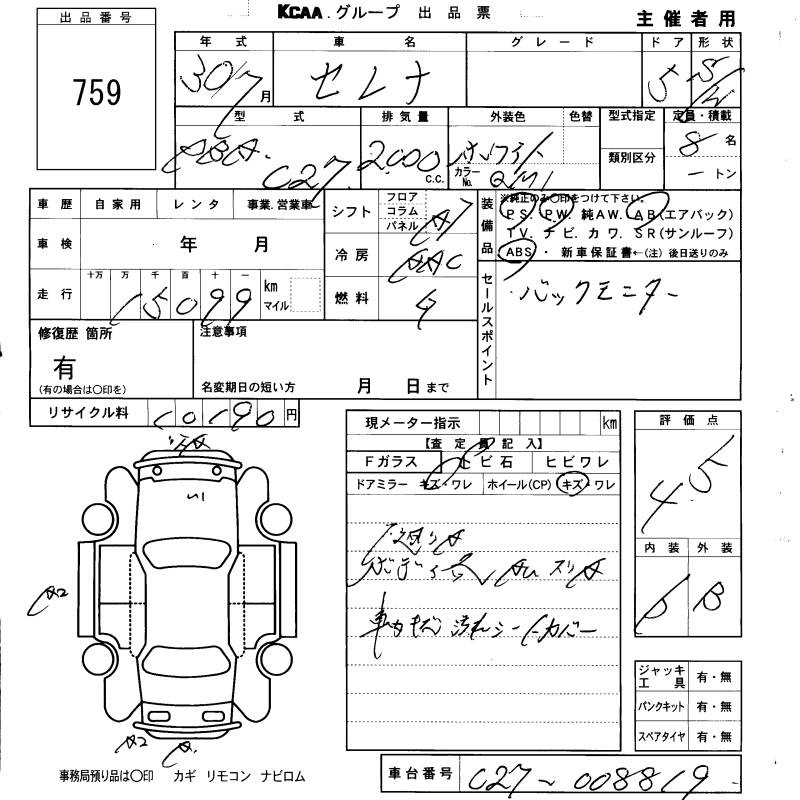 KCAA.グループ 出品票
主催者用
出品番号
759
年式 車名 グレード ドア 形状
30/7月 セレナ 5 S/W
型式 排気量 外装色 色替 型式指定 定員・積載
DBA-C27 2000 C.C. ホワイト 8名
カラーNo. QM1 類別区分 ートン
車歴 自家用 レンタ 事業.営業車
シフト フロア コラム パネル AT
装備品 ※純正のみ〇印をつけて下さい。
PS. PW. 純AW. AB(エアバック)
TV. ナビ. カワ. SR(サンルーフ)
ABS・新車保証書←(注)後日送りのみ
車検 年 月
冷房 AAC
走行 十万 万 千 百 十 一
15099 km マイル
燃料
セールスポイント バックモニター
修復歴 箇所
有
(有の場合は〇印を)
注意事項
名変期日の短い方 月 日まで
リサイクル料 10190円
現メーター指示 km
【査定員記入】
Fガラス トビ石 ヒビワレ
ドアミラー キズ・ワレ ホイール(CP) キズ・ワレ
評価点
4.5
内装 外装
B B
A2
車内キズ 汚れ シートカバー
ジャッキ工具 有・無
パンクキット 有・無
スペアタイヤ 有・無
A2 A.
事務局預り品は〇印 カギ リモコン ナビロム
車台番号 C27-008819